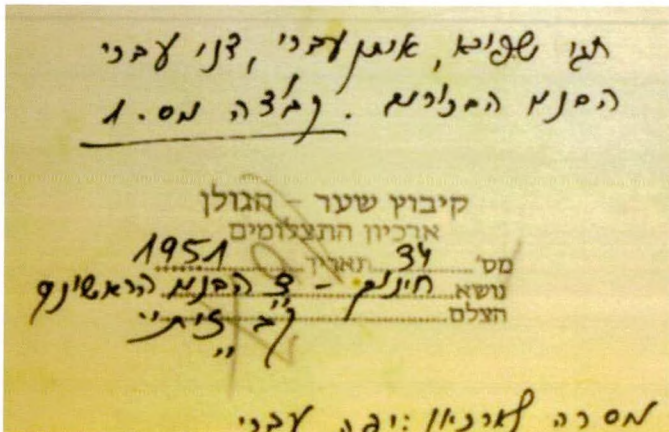 חגי שפירא, איתן עברי, דני עברי
הבנים הבכורים. קבוצה מס. 1
קיבוץ שער - הגולן
ארכיון התצלומים
מס' 34 תאריך 1951
נושא חינוך - 3 הבנים הראשונים
הצלם
קב' זית"
"
מסרה לארכיון: יפה עברי